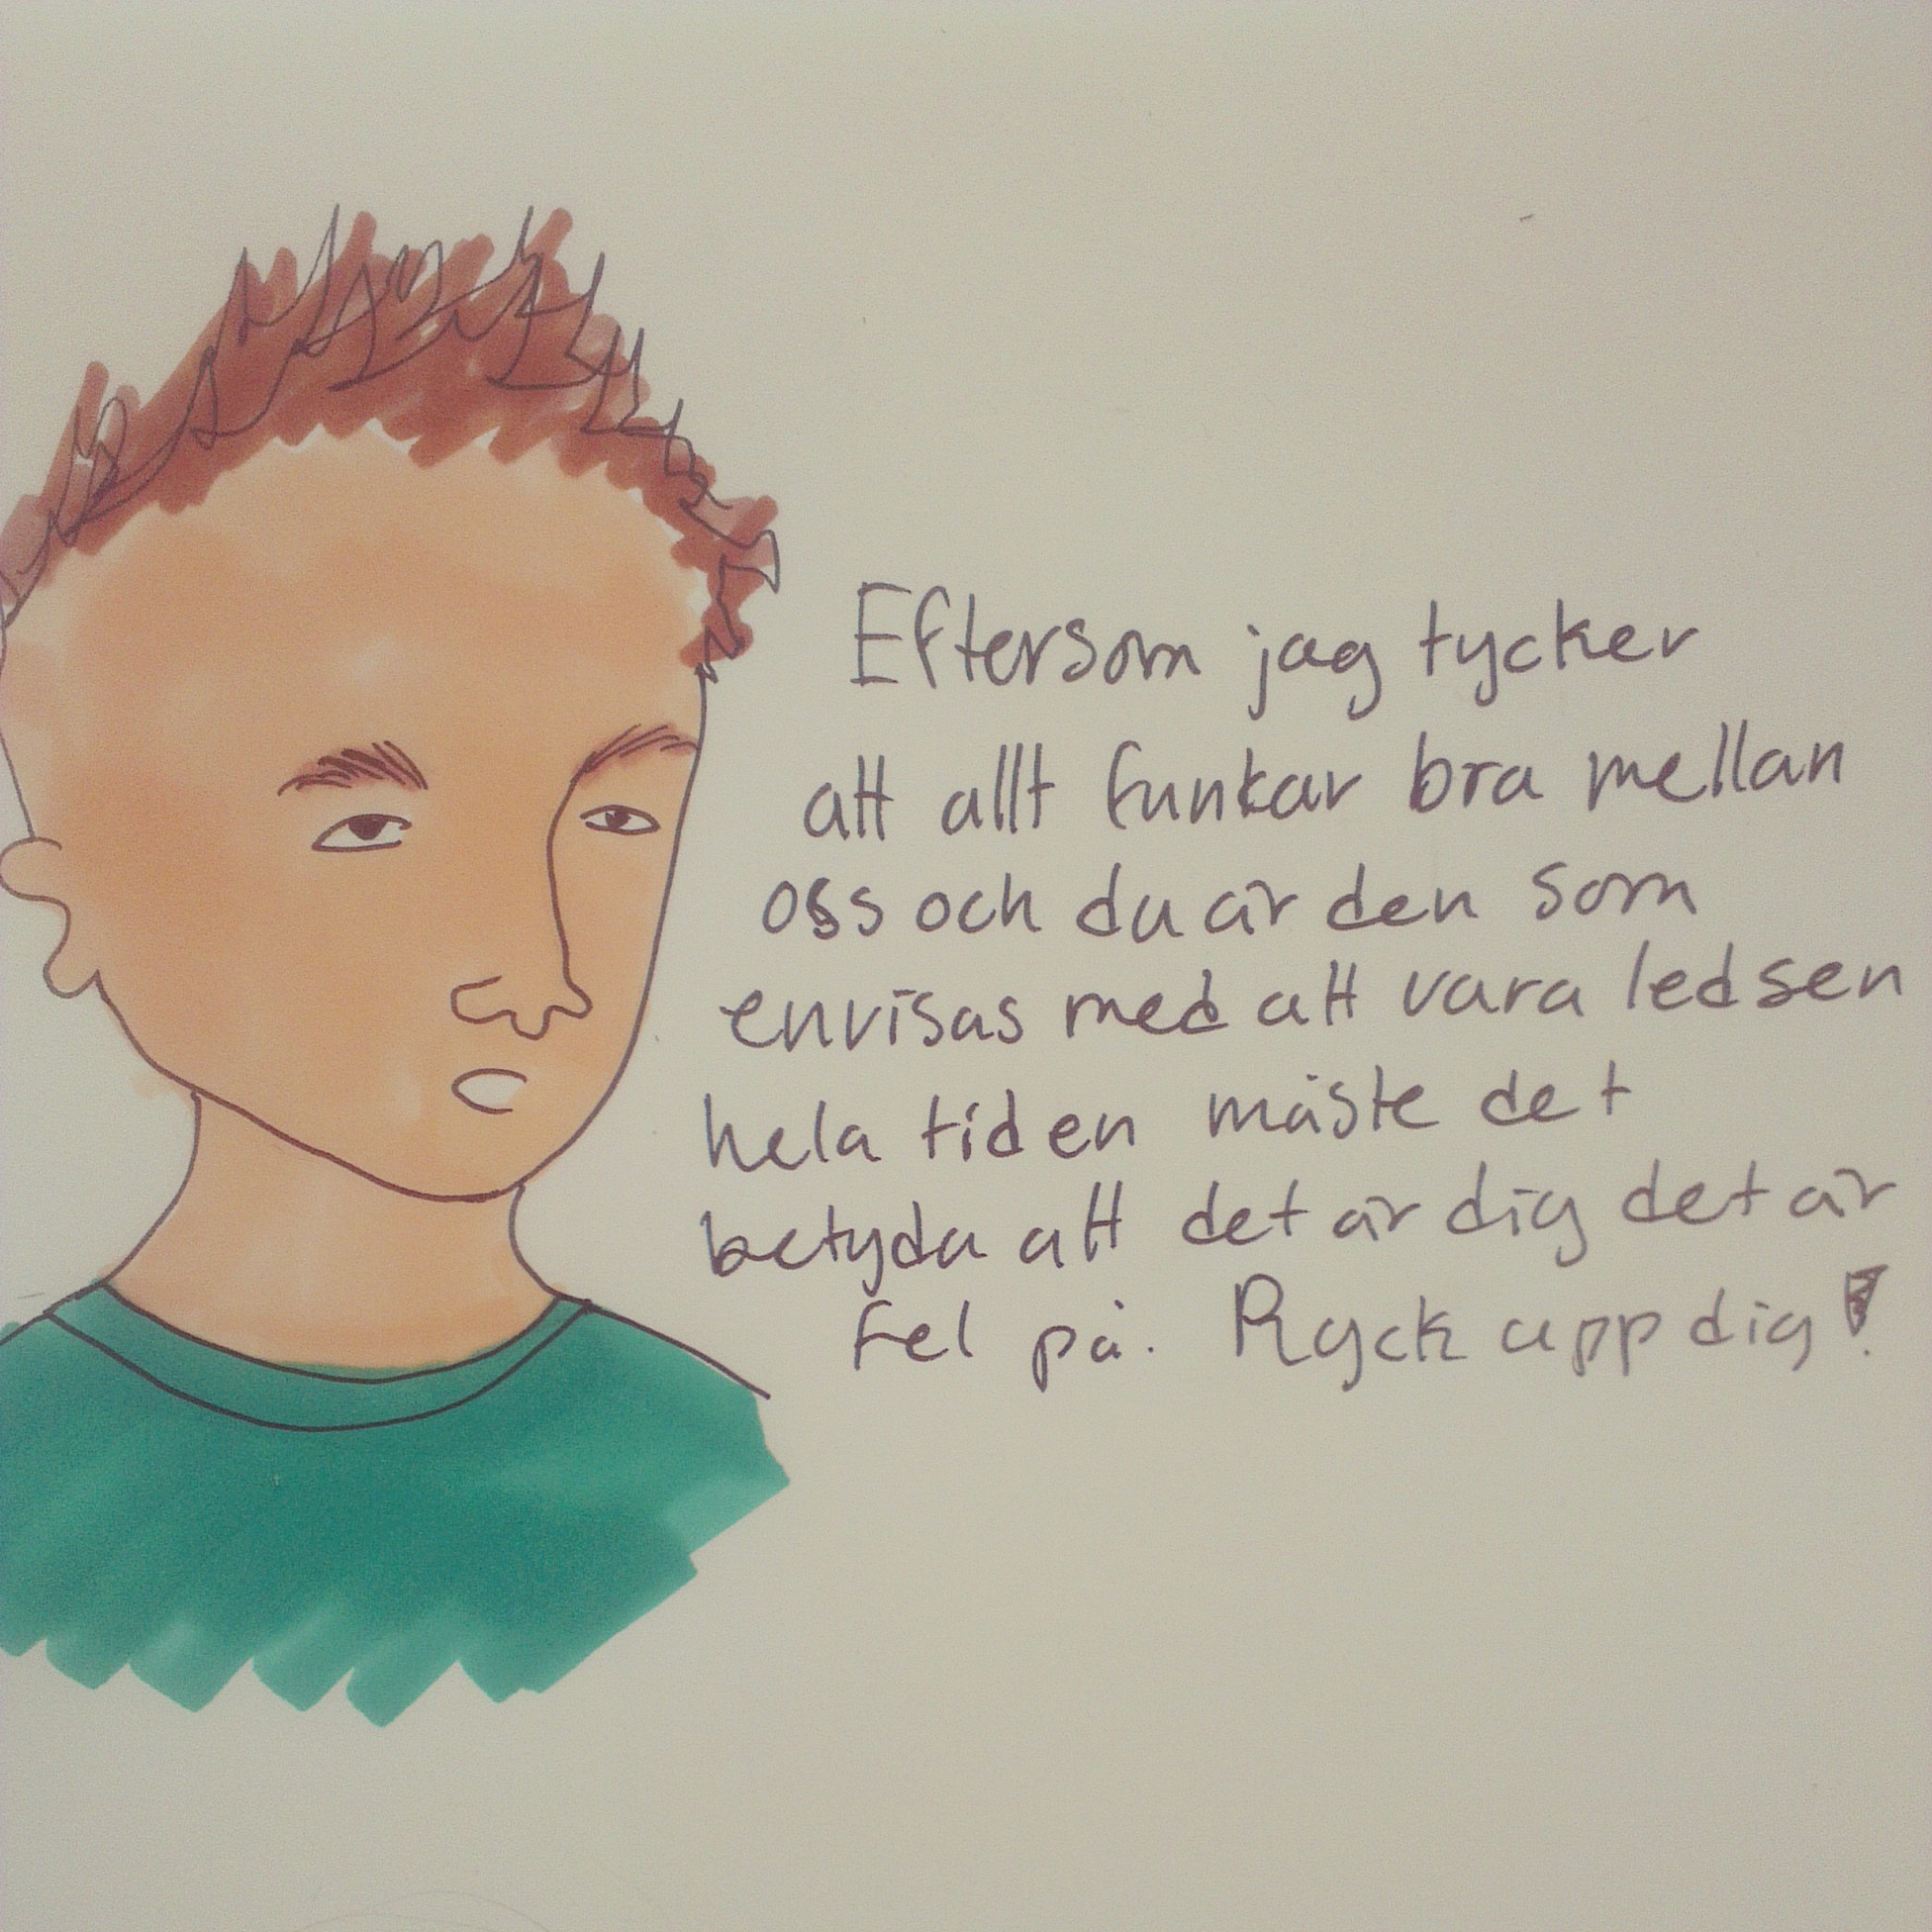 Eftersom jag tycker
att allt funkar bra mellan
oss och du är den som
envisas med att vara ledsen
hela tiden måste det
betyda att det är dig det är
fel på. Ryck upp dig!